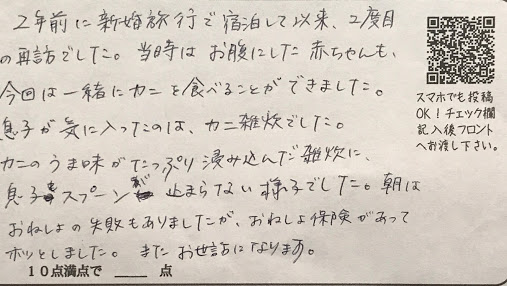 2年前に新婚旅行で宿泊して以来、2度目
の再訪でした。当時はお腹にした赤ちゃんも、
今回は一緒にカニを食べることができました。
息子が気に入ったのは、カニ雑炊でした。
カニのうま味がたっぷり浸み込んだ雑炊に、
息子もスプーンが止まらない様子でした。朝は
おねしょの失敗もありましたが、おねしょ保険があって
ホッとしました。またお世話になります。
10点満点で ___ 点
スマホでも投稿
OK!チェック欄
記入後フロント
へお渡し下さい。